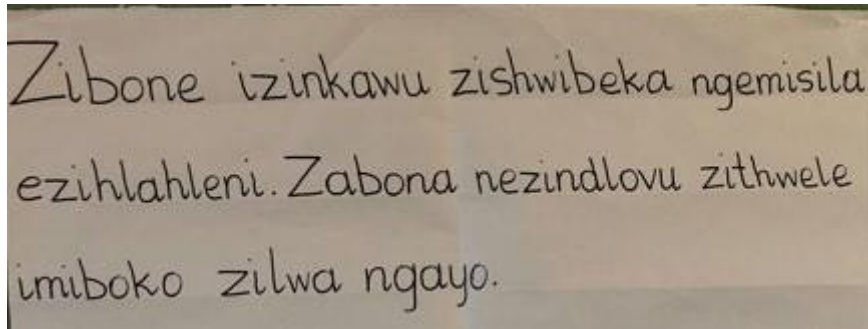 Zibone izinkawu zishwibeka ngemisila
ezihlahleni. Zabona nezindlovu zithwele
imiboko zilwa ngayo.